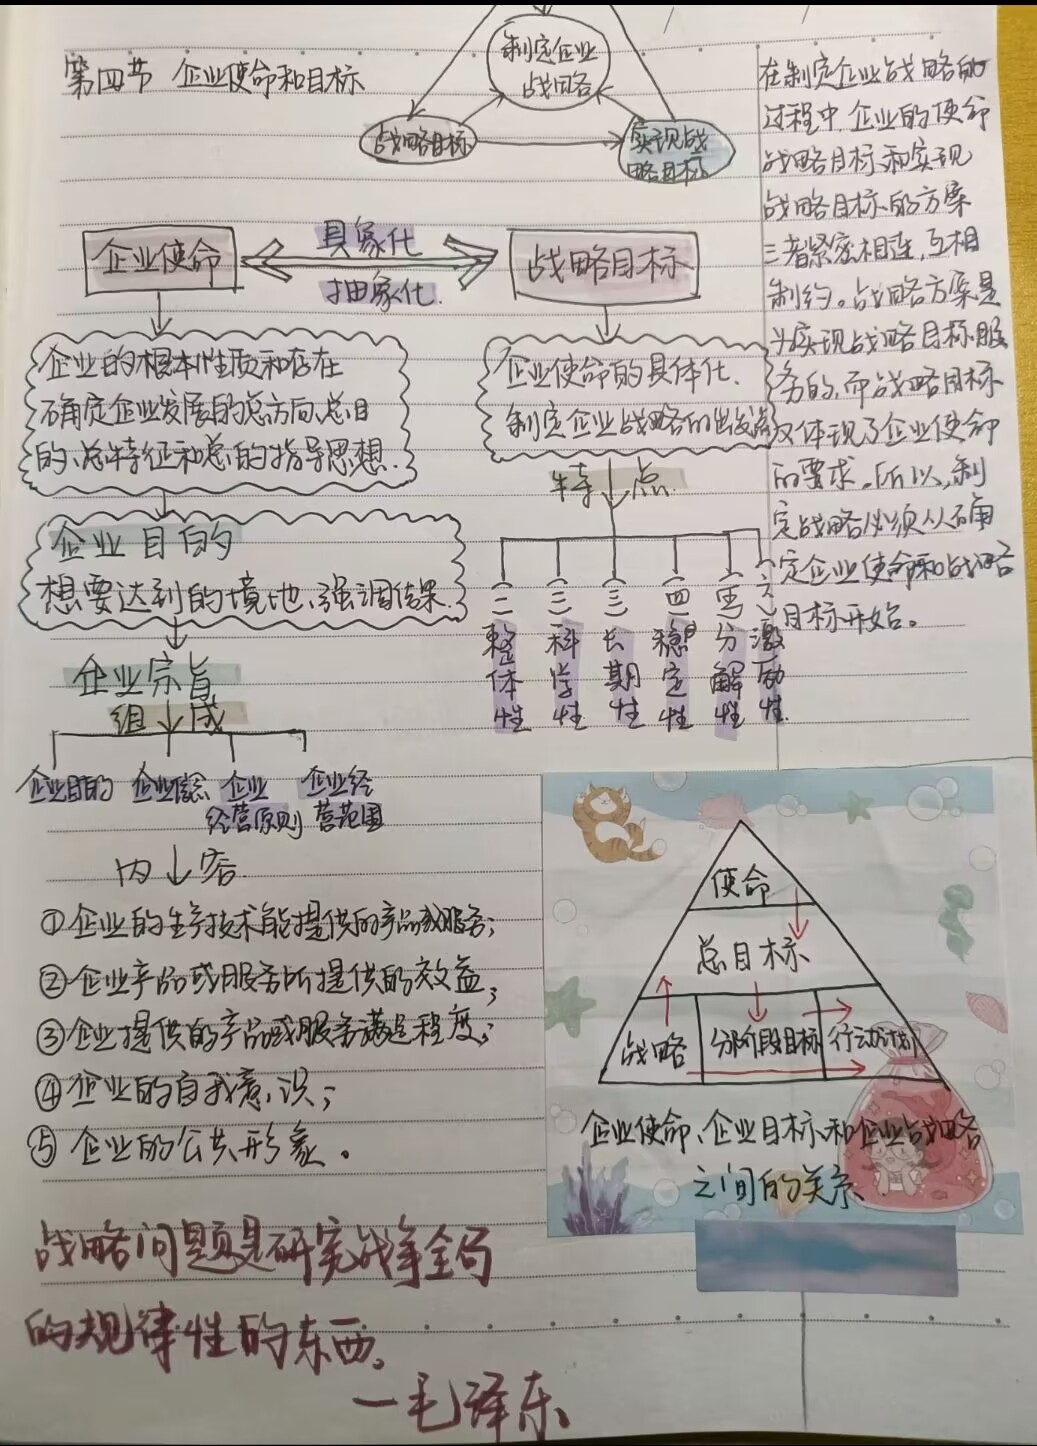 第四节 企业使命和目标
制定企业
战略
战略目标
实现战
略目标
在制定企业战略的
过程中,企业的使命
战略目标和实现
战略目标的方案
三者紧密相连,互相
制约。战略方案是
为实现战略目标服
务的,而战略目标
又体现了企业使命
的要求。所以,制
定战略必须从确
定企业使命和战略
目标开始。
企业使命
具象化
抽象化
战略目标
企业的根本性质和存在
确定企业发展的总方向、总目
的、总特征和总的指导思想.
企业使命的具体化.
制定企业战略的出发点
特点
(一)整体性
(二)科学性
(三)长期性
(四)稳定性
(五)分解性
(六)激励性
企业目的
想要达到的境地、强调结果.
企业宗旨
组成
企业目的
企业信念
企业
经营原则
企业经
营范围
内容
①企业的生产技术能提供的产品或服务;
②企业产品或服务所提供的效益;
③企业提供的产品或服务满足程度;
④企业的自我意识;
⑤企业的公共形象。
使命
总目标
战略
分阶段目标
行动计划
企业使命、企业目标和企业战略
之间的关系
战略问题是研究战争全局
的规律性的东西。
—毛泽东